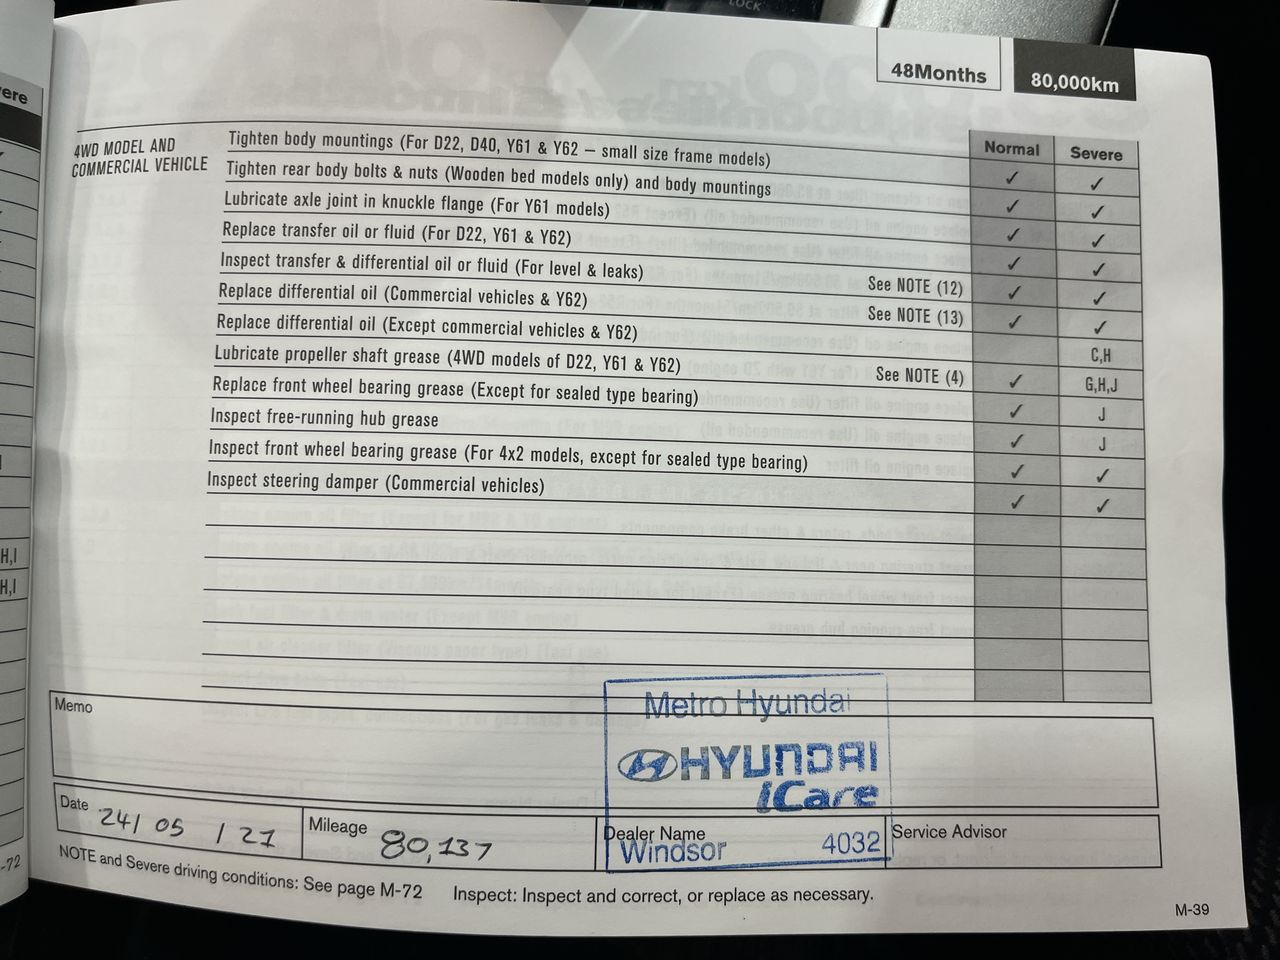 LOCK
ere
48Months
80,000km
4WD MODEL AND
COMMERCIAL VEHICLE
Normal Severe
Tighten body mountings (For D22, D40, Y61 & Y62 – small size frame models) ✓ ✓
Tighten rear body bolts & nuts (Wooden bed models only) and body mountings ✓ ✓
Lubricate axle joint in knuckle flange (For Y61 models) ✓ ✓
Replace transfer oil or fluid (For D22, Y61 & Y62) ✓ ✓
Inspect transfer & differential oil or fluid (For level & leaks) See NOTE (12) ✓ ✓
Replace differential oil (Commercial vehicles & Y62) See NOTE (13) ✓ ✓
Replace differential oil (Except commercial vehicles & Y62) C,H
Lubricate propeller shaft grease (4WD models of D22, Y61 & Y62) See NOTE (4) ✓ G,H,J
Replace front wheel bearing grease (Except for sealed type bearing) ✓ J
Inspect free-running hub grease ✓ J
Inspect front wheel bearing grease (For 4x2 models, except for sealed type bearing) ✓ ✓
Inspect steering damper (Commercial vehicles) ✓ ✓
H,I
H,I
Memo
Metro Hyundai
HYUNDAI
iCare
Date 24/ 05 / 21
Mileage 80,137
Dealer Name
Windsor 4032
Service Advisor
-72
NOTE and Severe driving conditions: See page M-72 Inspect: Inspect and correct, or replace as necessary.
M-39